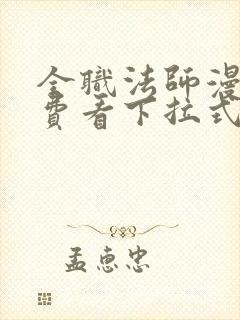 全職法師漫
費看下拉式
孟惠忠